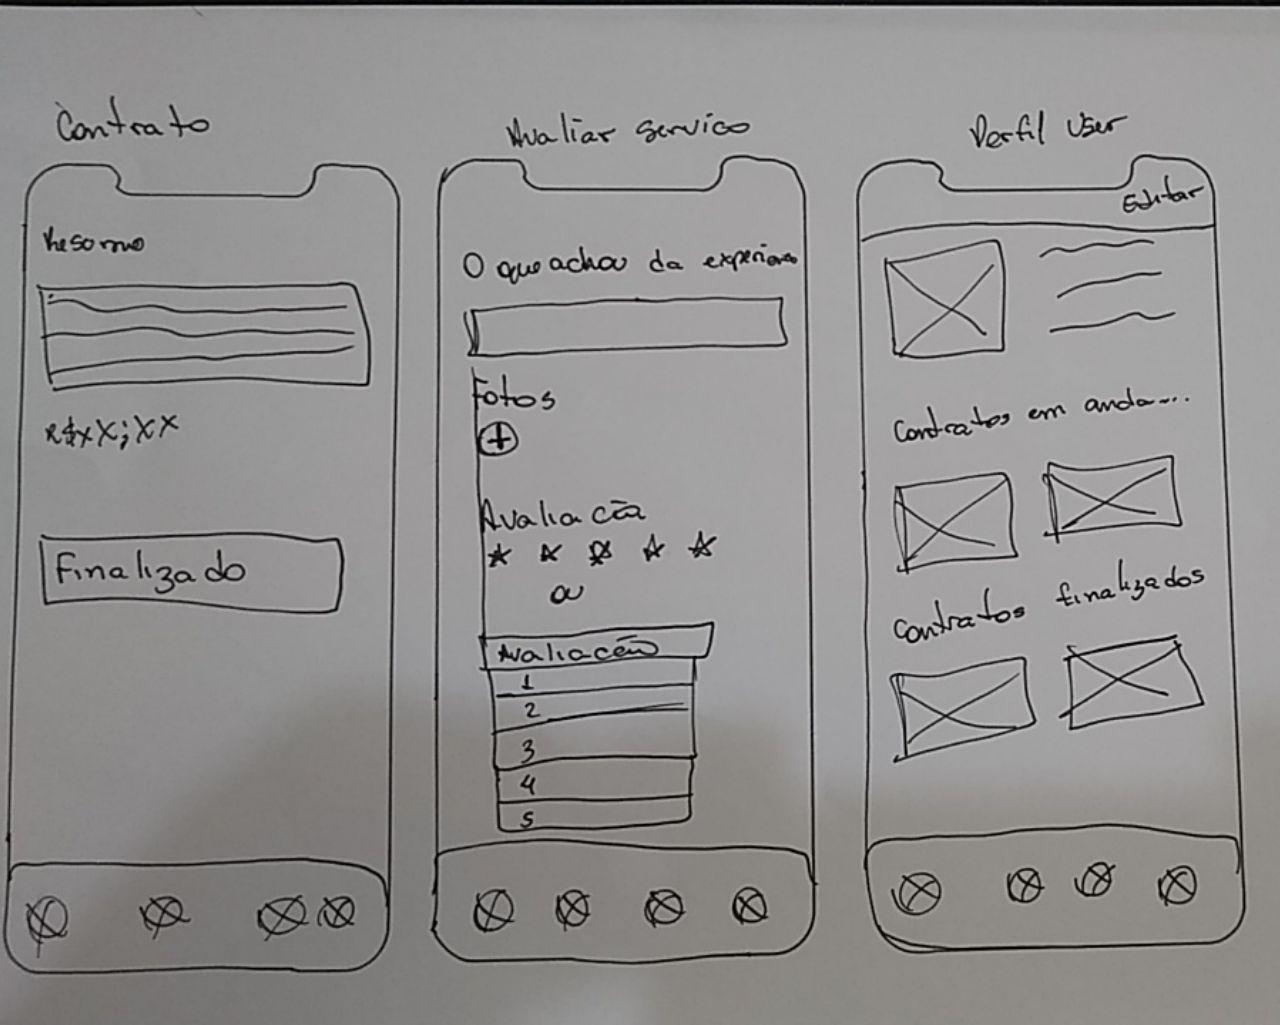 Contrato
Resumo
R$XX;XX
Finalizado
Avaliar servico
O que achou da experienc
Fotos
Avaliacão
ou
Avaliacão
1
2
3
4
5
Perfil User
Editar
Contratos em anda...
Contratos finalizados